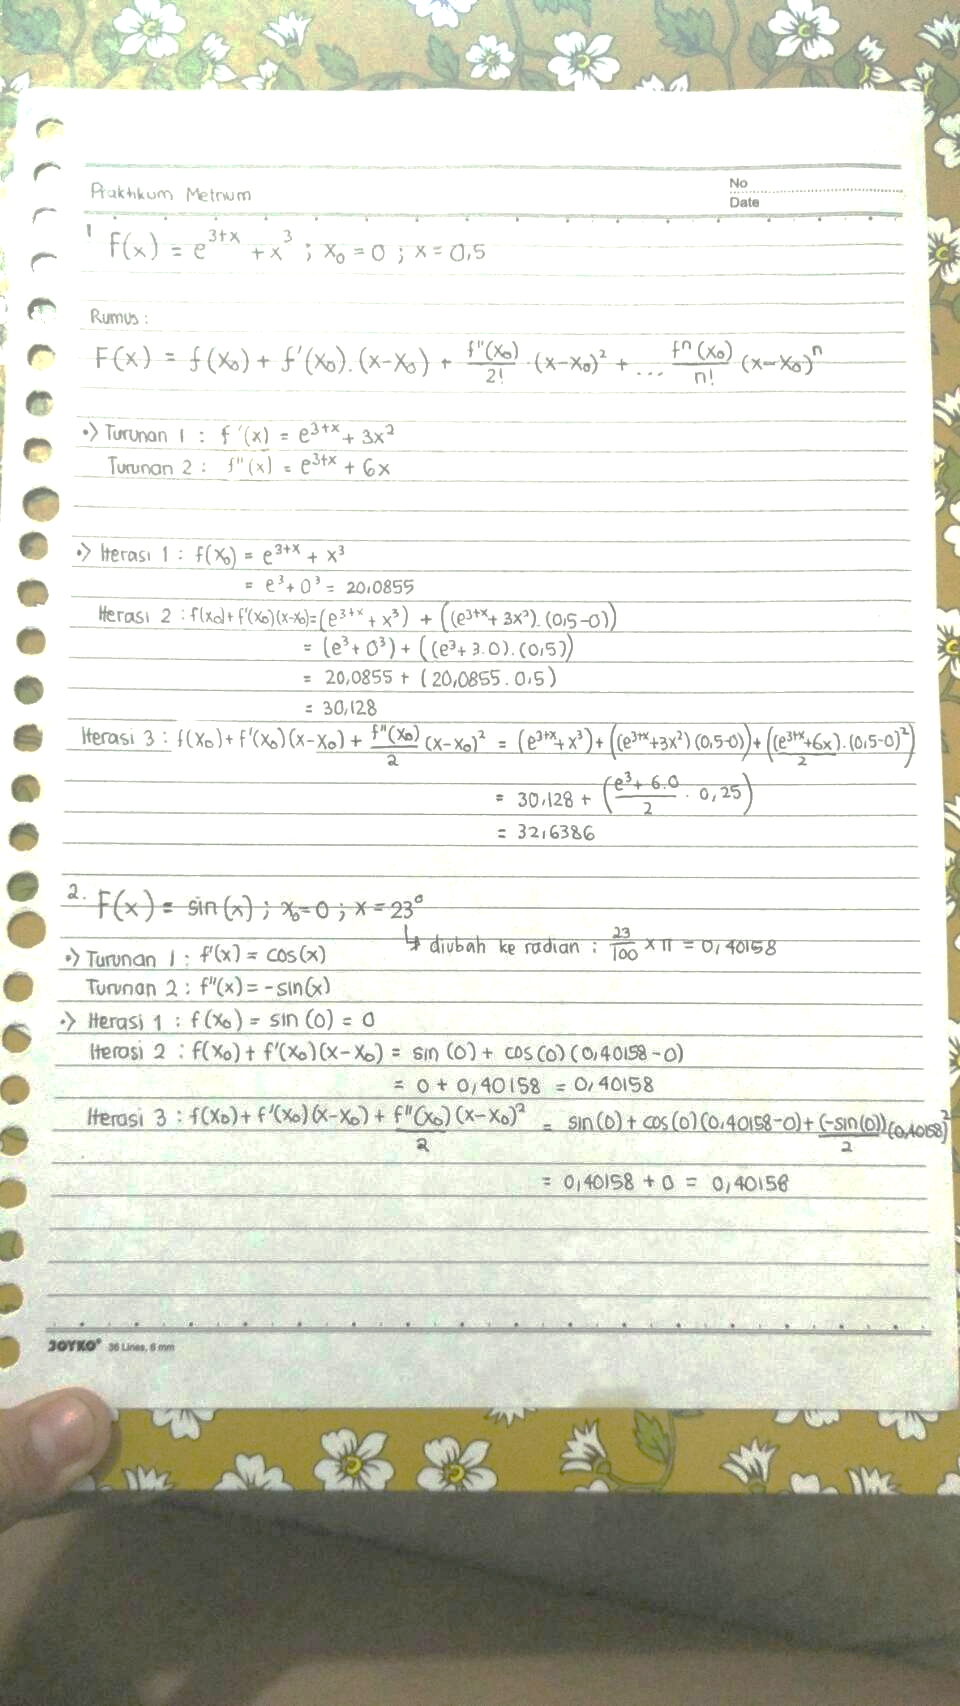 Praktikum Metnum
No
Date
1 F(x) = e^{3+x} + x^3 ; x₀ = 0 ; x = 0,5
Rumus :
F(x) = f(x₀) + f'(x₀).(x-x₀) + f''(x₀)/2! .(x-x₀)² + ... fⁿ(x₀)/n! (x-x₀)ⁿ
•> Turunan 1 : f'(x) = e^{3+x} + 3x²
Turunan 2 : f''(x) = e^{3+x} + 6x
•> Iterasi 1 : f(x₀) = e^{3+x} + x³
= e³ + 0³ = 20,0855
Iterasi 2 : f(x₀) + f'(x₀)(x-x₀) = (e^{3+x} + x³) + ((e^{3+x} + 3x²).(0,5-0))
= (e³ + 0³) + ((e³ + 3.0).(0,5))
= 20,0855 + (20,0855 . 0,5)
= 30,128
Iterasi 3 : f(x₀) + f'(x₀)(x-x₀) + f''(x₀)/2 (x-x₀)² = (e^{3+x} + x³) + ((e^{3+x} + 3x²)(0,5-0)) + ((e^{3+x} + 6x)/2 .(0,5-0)²)
= 30,128 + ((e³ + 6.0)/2 . 0,25)
= 32,6386
2. F(x) = sin(x) ; x₀ = 0 ; x = 23°
↳ diubah ke radian : 23/100 × π = 0,40158
•> Turunan 1 : f'(x) = cos(x)
Turunan 2 : f''(x) = -sin(x)
•> Iterasi 1 : f(x₀) = sin(0) = 0
Iterasi 2 : f(x₀) + f'(x₀)(x-x₀) = sin(0) + cos(0)(0,40158-0)
= 0 + 0,40158 = 0,40158
Iterasi 3 : f(x₀) + f'(x₀)(x-x₀) + f''(x₀)/2 (x-x₀)² = sin(0) + cos(0)(0,40158-0) + (-sin(0))/2 (0,40158)²
= 0,40158 + 0 = 0,40158
JOYKO® 36 Lines, 6 mm